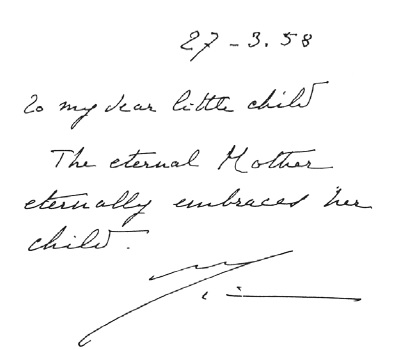 27-3.58
To my dear little child
The eternal Mother
eternally embraces her
child.